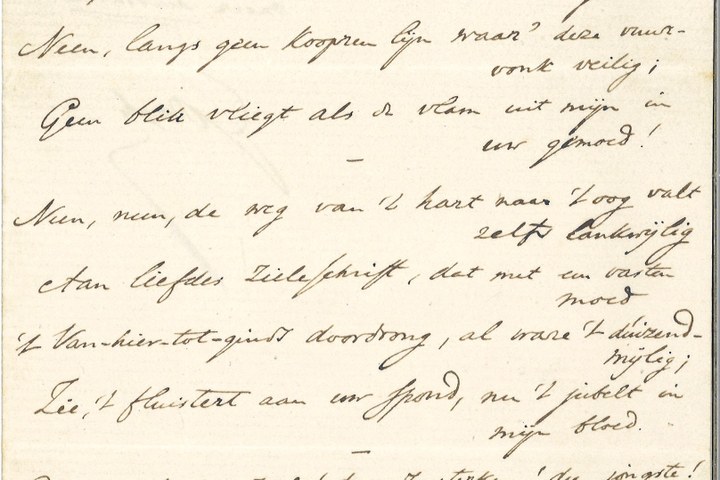 Neen, langs geen koopren lijn waar' deze vuur-
vonk veilig;
Geen blik vliegt als de vlam uit mijn in
uw gemoed!
—
Neen, neen, de weg van 't hart naar 't oog valt
zelfs lankwijlig
Aan liefdes zieleschrift, dat met een vasten
moed
't Van-hier-tot-ginds doordrong, al ware 't duizend-
mijlig;
Zie, 't fluistert aan uw spond, nu 't jubelt in
mijn bloed.
—
jongste!